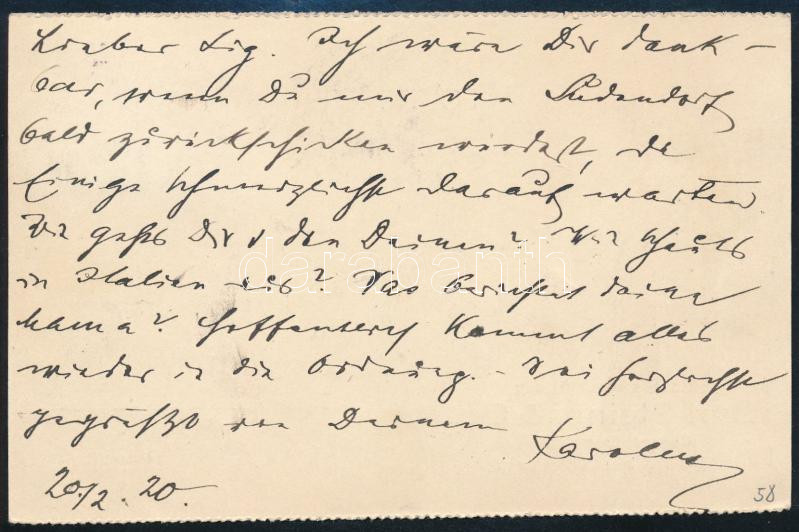 Lieber Sig. Ich wäre Dir dank-
bar, wenn Du mir den Ludendorf
bald zurückschicken würdest, da
Einige schmerzlichst darauf warten
Wie gehts Dir & den Deinen? Wie schauts
in Italien aus? Was berichtet deine
Mama? Hoffentlich kommt alles
wieder in die Ordnung. - Sei herzlichst
gegrüßt von Deinem
Karolus
20./2. 20.
58
darabanth